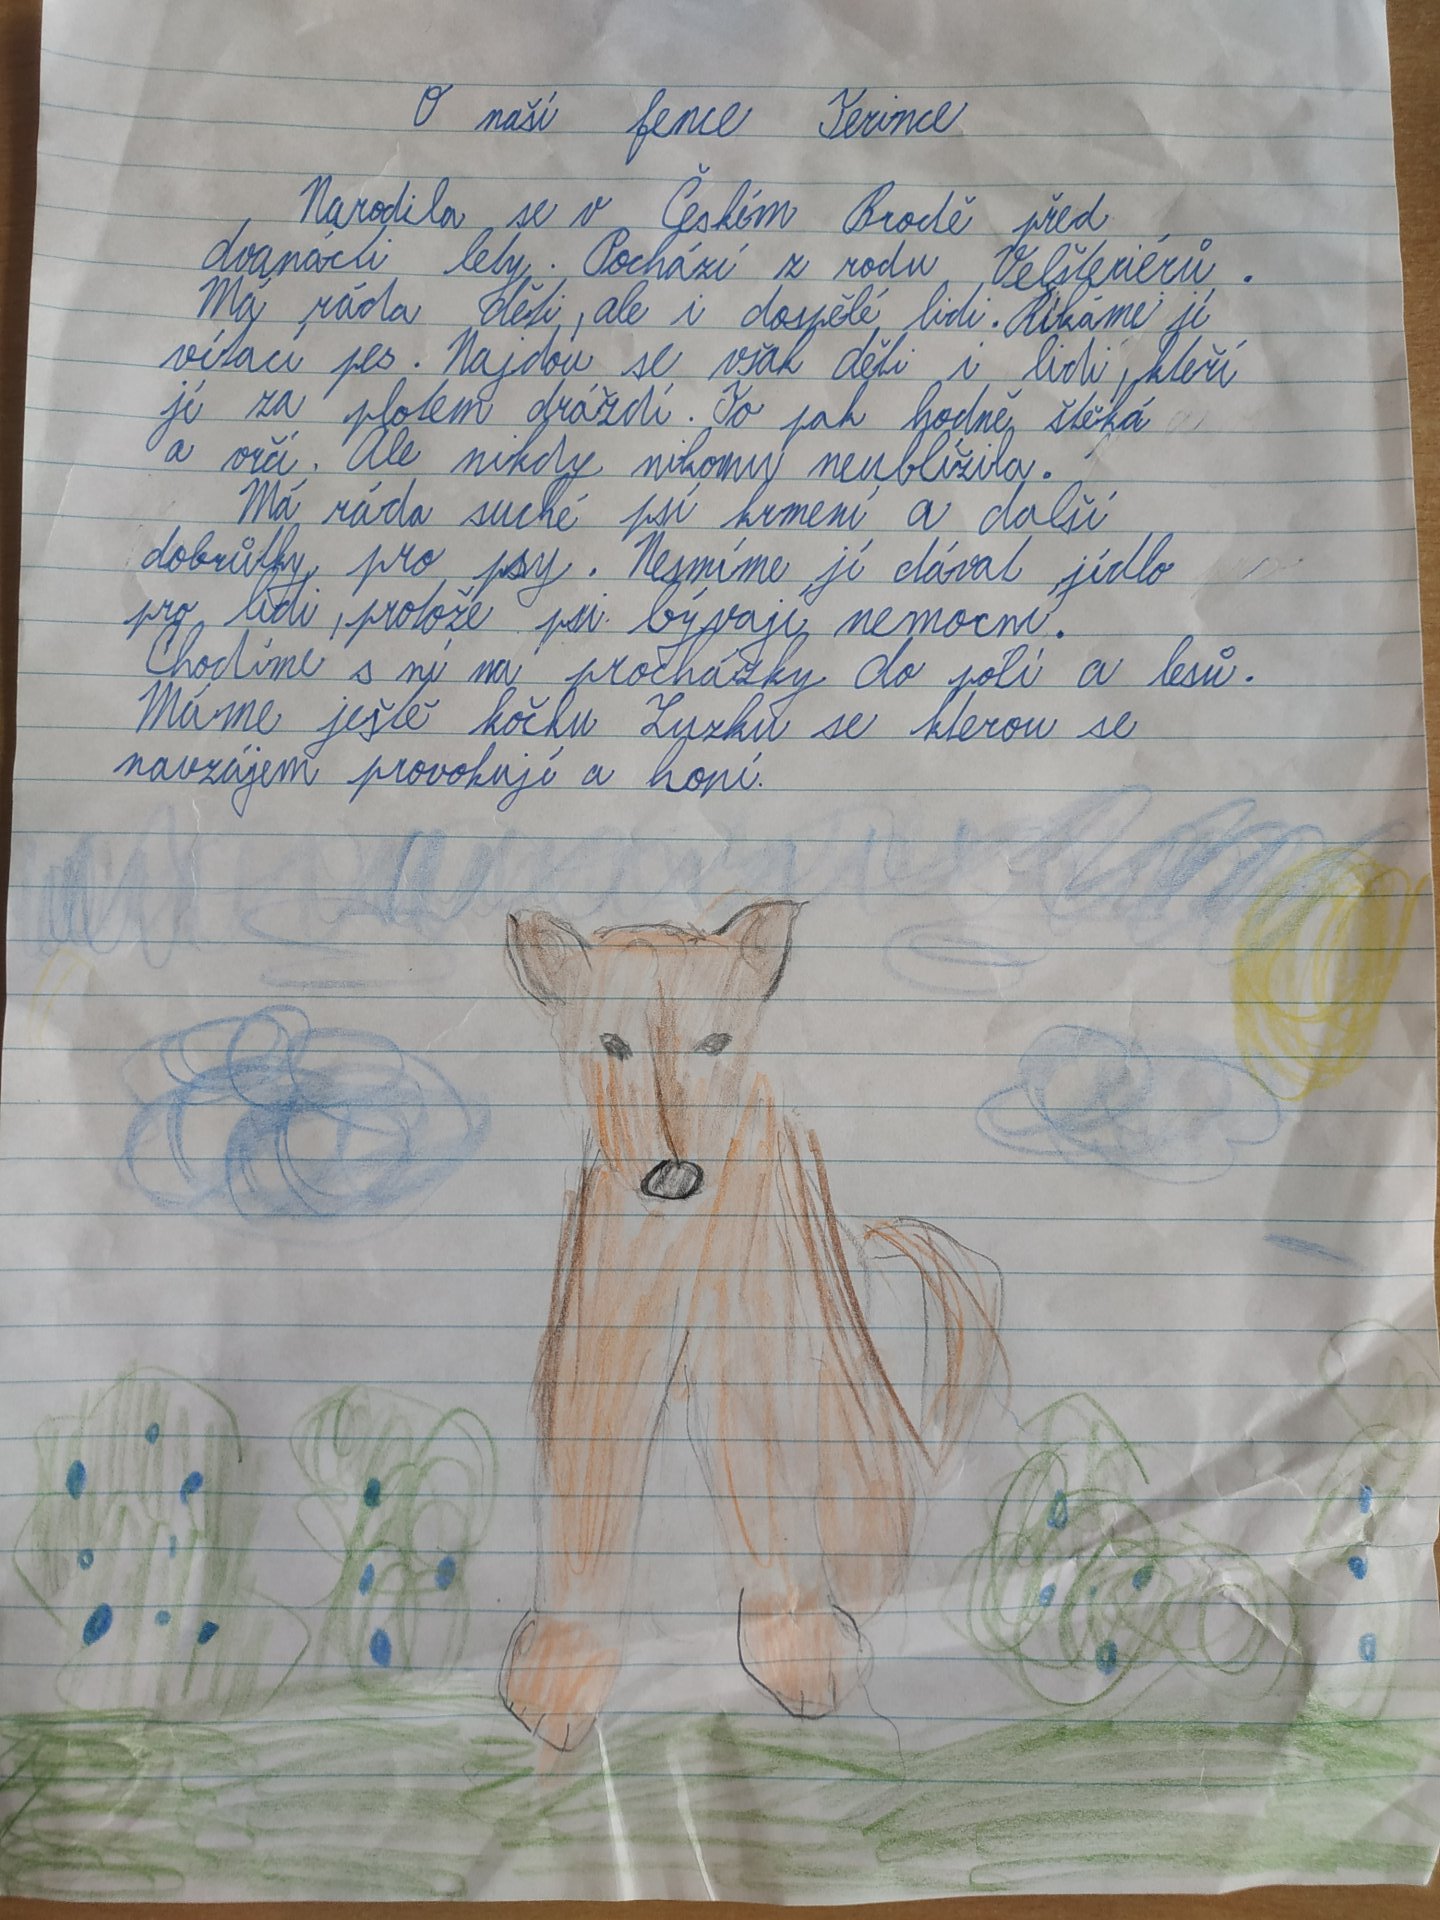 O naší fence Terince
Narodila se v Českém Brodě před
dvanácti lety. Pochází z rodu Velšteriérů.
Má ráda děti, ale i dospělé lidi. Říkáme jí
vítací pes. Najdou se však děti i lidi, kteří
jí za plotem dráždí. To pak hodně štěká
a vrčí. Ale nikdy nikomu neublížila.
Má ráda suché psí krmení a další
dobrůtky pro psy. Nesmíme jí dávat jídlo
pro lidi, protože psi bývají nemocní.
Chodíme s ní na procházky do polí a lesů.
Máme ještě kočku Zuzku se kterou se
navzájem provokují a honí.